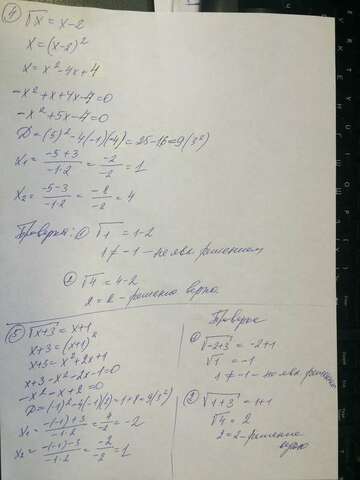 ④ √x = x-2
x = (x-2)²
x = x² - 4x + 4
-x² + x + 4x - 4 = 0
-x² + 5x - 4 = 0
D = (5)² - 4(-1)(-4) = 25 - 16 = 9 (3²)
x₁ = (-5+3)/(-1·2) = -2/-2 = 1
x₂ = (-5-3)/(-1·2) = -8/-2 = 4
Проверка: ① √1 = 1-2
1 ≠ -1 - не явл. решением
② √4 = 4-2
2 = 2 - решение верно
⑤ √x+3 = x+1
x+3 = (x+1)²
x+3 = x² + 2x + 1
x+3 - x² - 2x - 1 = 0
-x² - x + 2 = 0
D = (-1)² - 4(-1)(2) = 1 + 8 = 9 (3²)
x₁ = (-(-1)+3)/(-1·2) = 4/-2 = -2
x₂ = (-(-1)-3)/(-1·2) = -2/-2 = 1
Проверка
① √-2+3 = -2+1
√1 = -1
1 ≠ -1 - не явл. решением
② √1+3 = 1+1
√4 = 2
2 = 2 - решение
верно